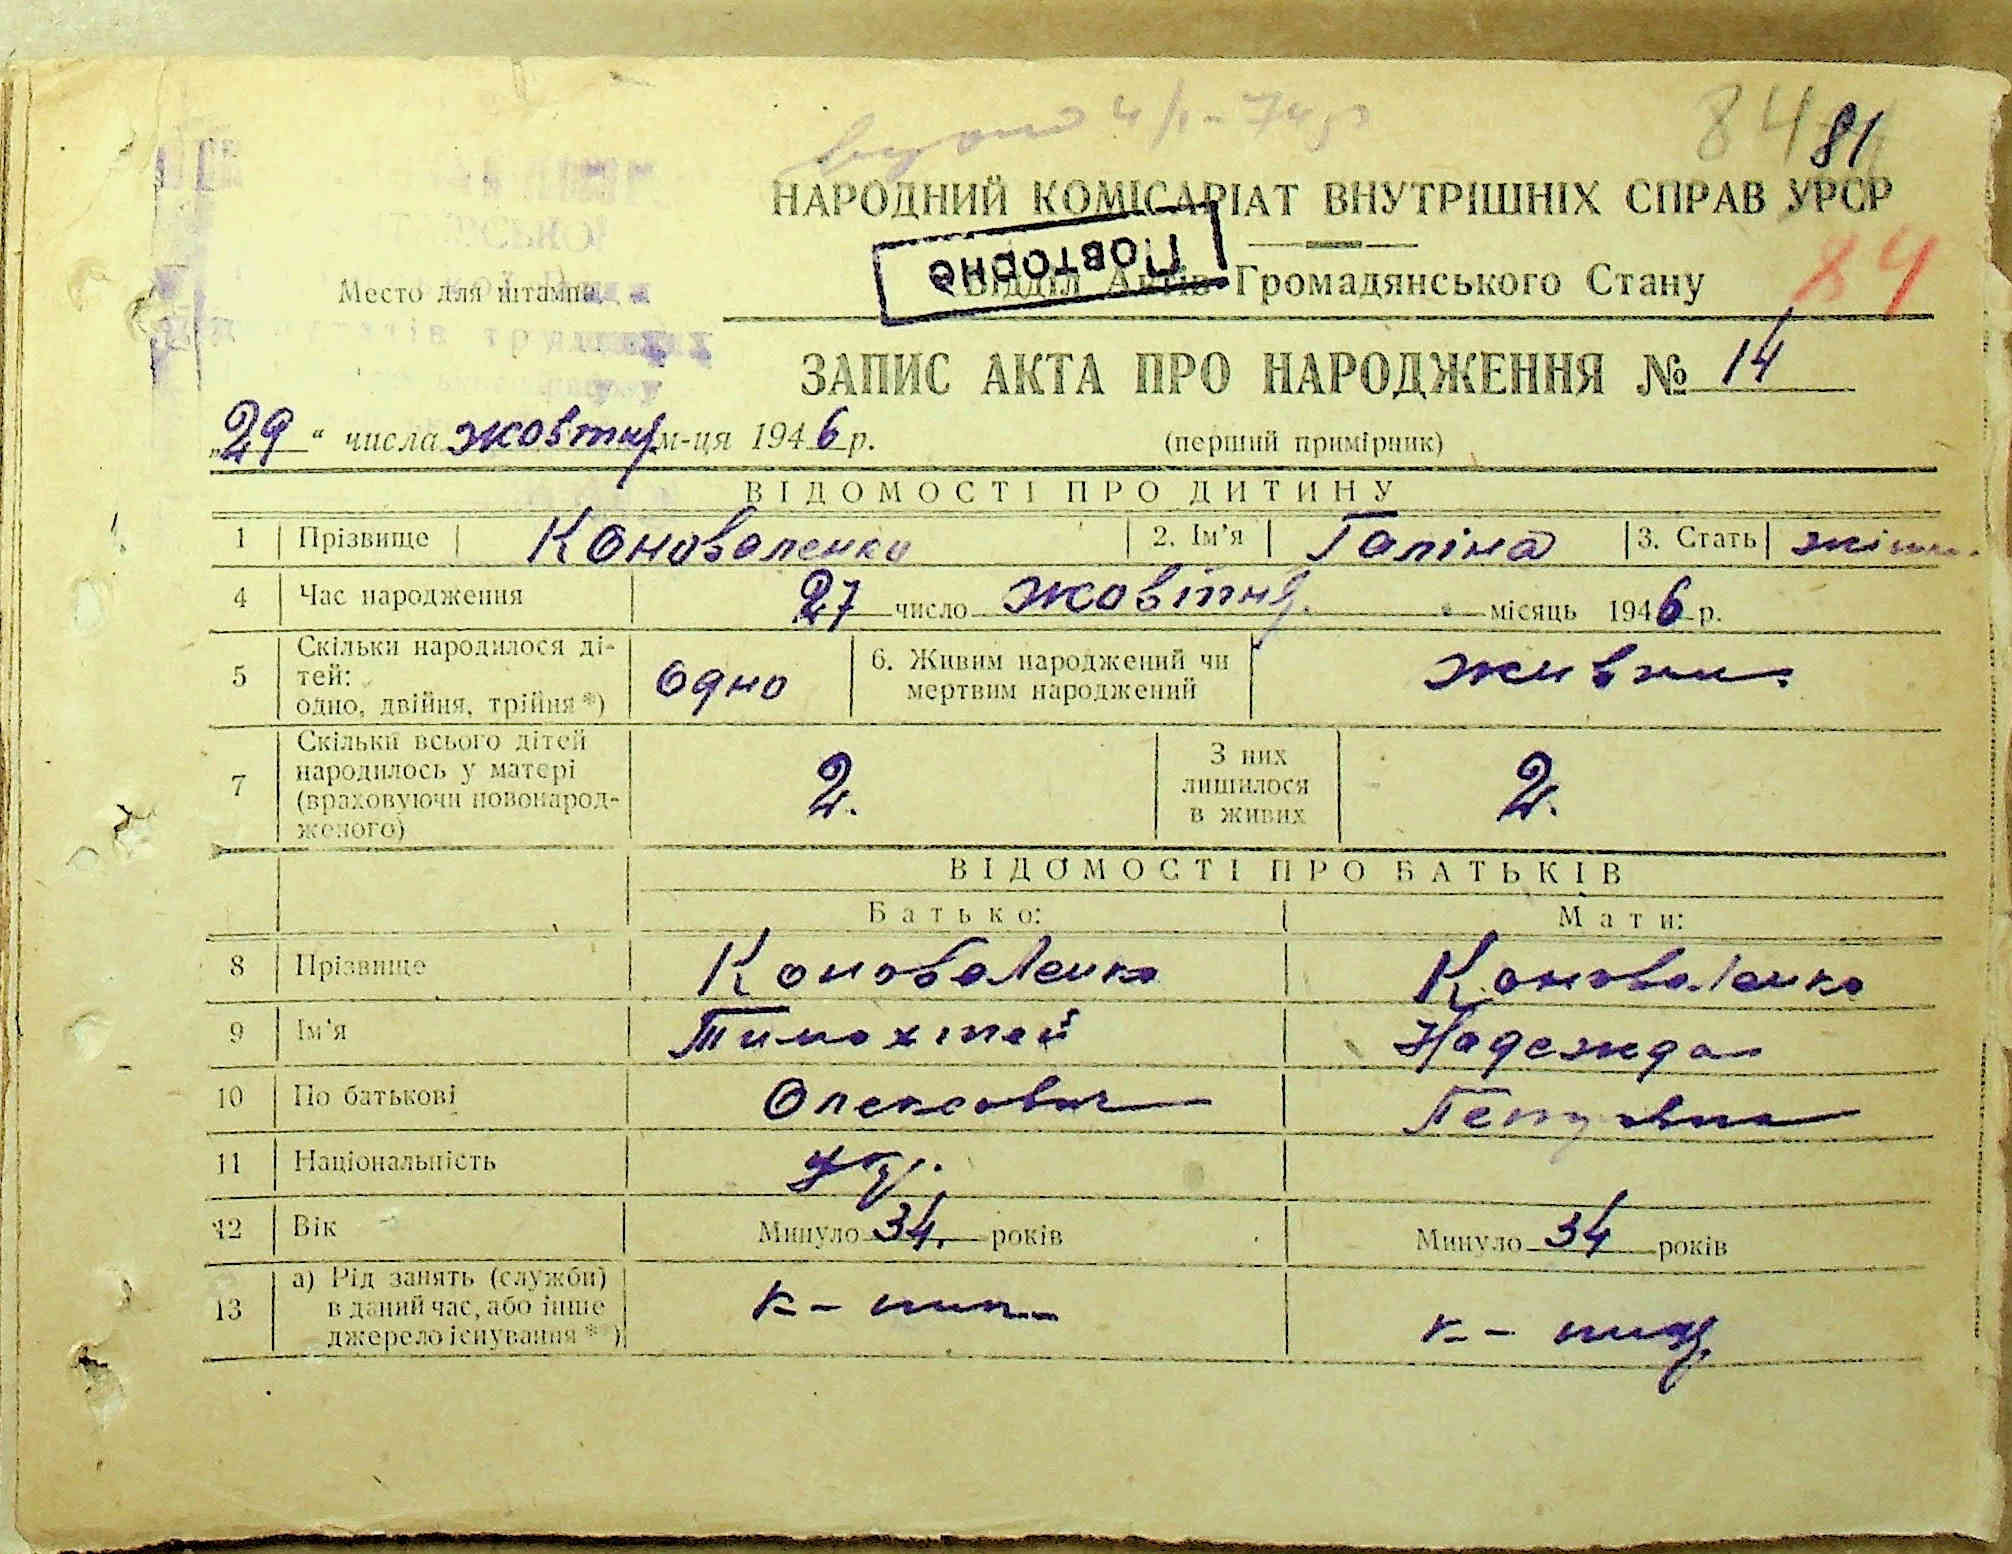 84 81
НАРОДНИЙ КОМІСАРІАТ ВНУТРІШНІХ СПРАВ УРСР
Повторне
Место для штампа
Відділ Актів Громадянського Стану
84
ЗАПИС АКТА ПРО НАРОДЖЕННЯ № 14
„29“ числа жовтня м-ця 1946 р.
(перший примірник)
ВІДОМОСТІ ПРО ДИТИНУ
1 Прізвище Коноваленко 2. Ім'я Галіна 3. Стать жіноч.
4 Час народження 27 число жовтня місяць 1946 р.
5 Скільки народилося ді-
тей:
одно, двійня, трійня*) одно
6. Живим народжений чи
мертвим народжений живим.
7 Скільки всього дітей
народилось у матері
(враховуючи новонарод-
женого) 2.
З них
лишилося
в живих 2.
ВІДОМОСТІ ПРО БАТЬКІВ
Батько: Мати:
8 Прізвище Коноваленко Коноваленко
9 Ім'я Тимохтей Надежда
10 По батькові Олексович
11 Національність укр.
12 Вік Минуло 34. років Минуло 34 років
13 а) Рід занять (служби)
в даний час, або інше
джерело існування*)